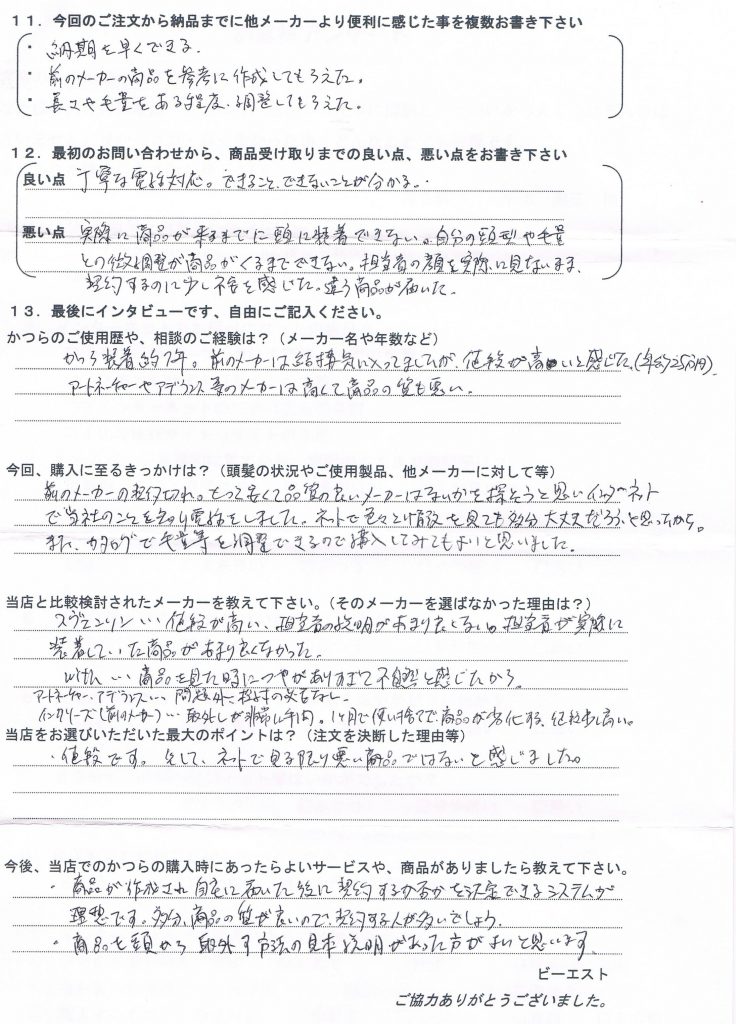 １１．今回のご注文から納品までに他メーカーより便利に感じた事を複数お書き下さい
・ 納期を早くできる．
・ 前のメーカーの商品を参考に作成してもらえた。
・ 長さや毛量をある程度、調整してもらえた。
１２．最初のお問い合わせから、商品受け取りまでの良い点、悪い点をお書き下さい
良い点 丁寧な電話対応。できること、できないことが分かる。
悪い点 実際に商品が来るまでに頭に装着できない。自分の頭型や毛量
との微調整が商品がくるまでできない。担当者の顔を実際に見ないまま、
契約するのに少し不安を感じた。違う商品が届いた。
１３．最後にインタビューです、自由にご記入ください。
かつらのご使用歴や、相談のご経験は？（メーカー名や年数など）
かつら装着約7年。前のメーカーは結構気に入ってましたが、値段が高いと感じた。(年約25万円)
アートネーチャーやアデランス等のメーカーは高くて商品の質も悪い。
今回、購入に至るきっかけは？（頭髪の状況やご使用製品、他メーカーに対して等）
前のメーカーの契約切れ。もっと安くて品質の良いメーカーはないかを探そうと思いインターネット
で当社のことを知り電話をしました。ネットで色々と情報を見ても多分大丈夫だろうと思ったから。
また、カタログで毛量等を調整できるので購入してみてもよいと思いました。
当店と比較検討されたメーカーを教えて下さい。（そのメーカーを選ばなかった理由は？）
スヴェンソン…値段が高い、担当者の説明があまり良くない。担当者が実際に
装着していた商品があまり良くなかった。
With …商品を見た時につやがありすぎて不自然と感じたから。
アートネーチャー、アデランス…問題外、検討の必要なし。
インクリーズ（前のメーカー）…取外しが非常に手間。1ヶ月で使い捨てで商品が劣化する、値段少し高い。
当店をお選びいただいた最大のポイントは？（注文を決断した理由等）
・値段です。そして、ネットで見る限り悪い商品ではないと感じました。
今後、当店でのかつらの購入時にあったらよいサービスや、商品がありましたら教えて下さい。
・商品が作成され自宅に届いた後に契約するか否かを決定できるシステムが
理想です。多分、商品の質が良いので、契約する人が多いでしょう。
・商品を頭から取外す方法の見本、説明があった方がよいと思います。
ビーエスト
ご協力ありがとうございました。